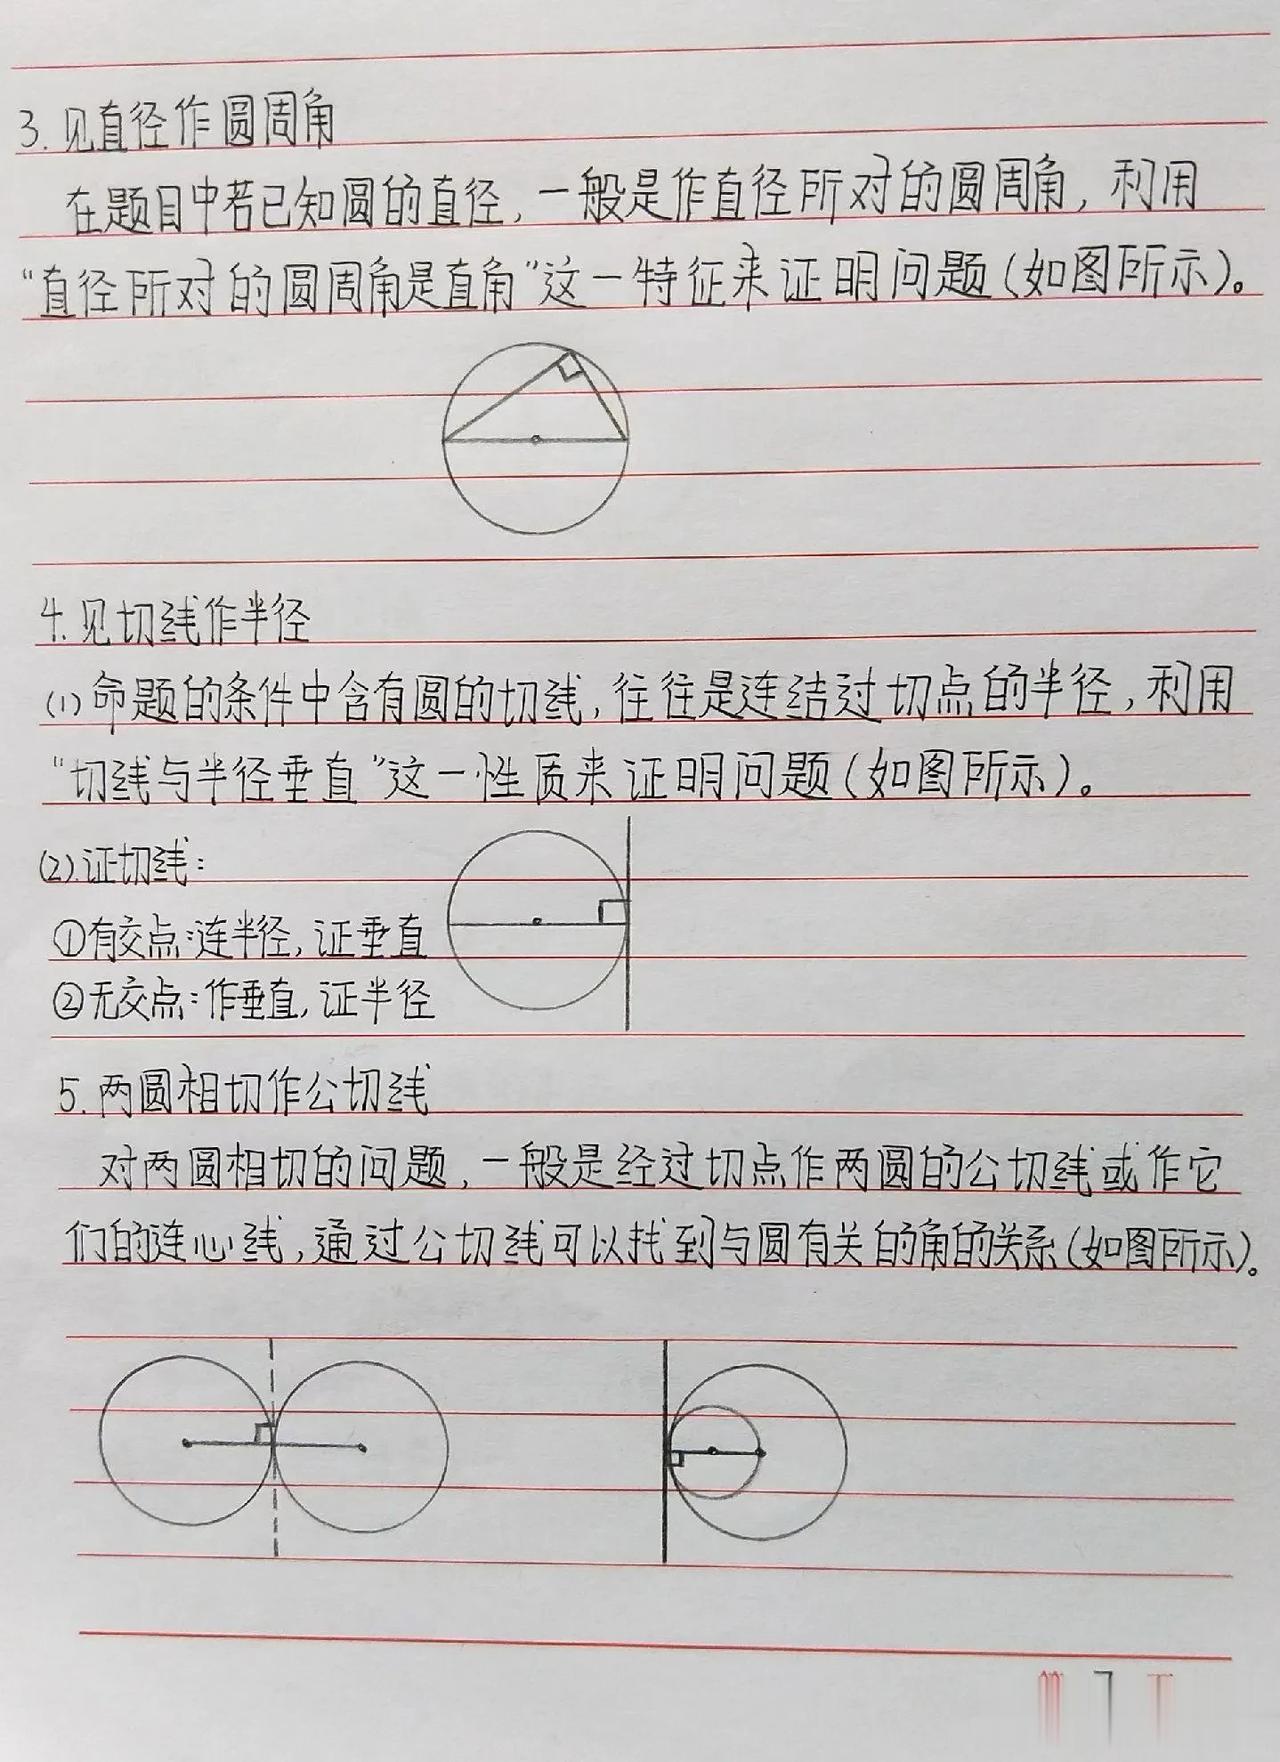 3.见直径作圆周角
在题目中若已知圆的直径,一般是作直径所对的圆周角,利用
“直径所对的圆周角是直角”这一特征来证明问题(如图所示)。
4.见切线作半径
(1)命题的条件中含有圆的切线,往往是连结过切点的半径,利用
“切线与半径垂直”这一性质来证明问题(如图所示)。
(2).证切线:
①有交点:连半径,证垂直
②无交点:作垂直,证半径
5.两圆相切作公切线
对两圆相切的问题,一般是经过切点作两圆的公切线或作它
们的连心线,通过公切线可以找到与圆有关的角的关系(如图所示)。